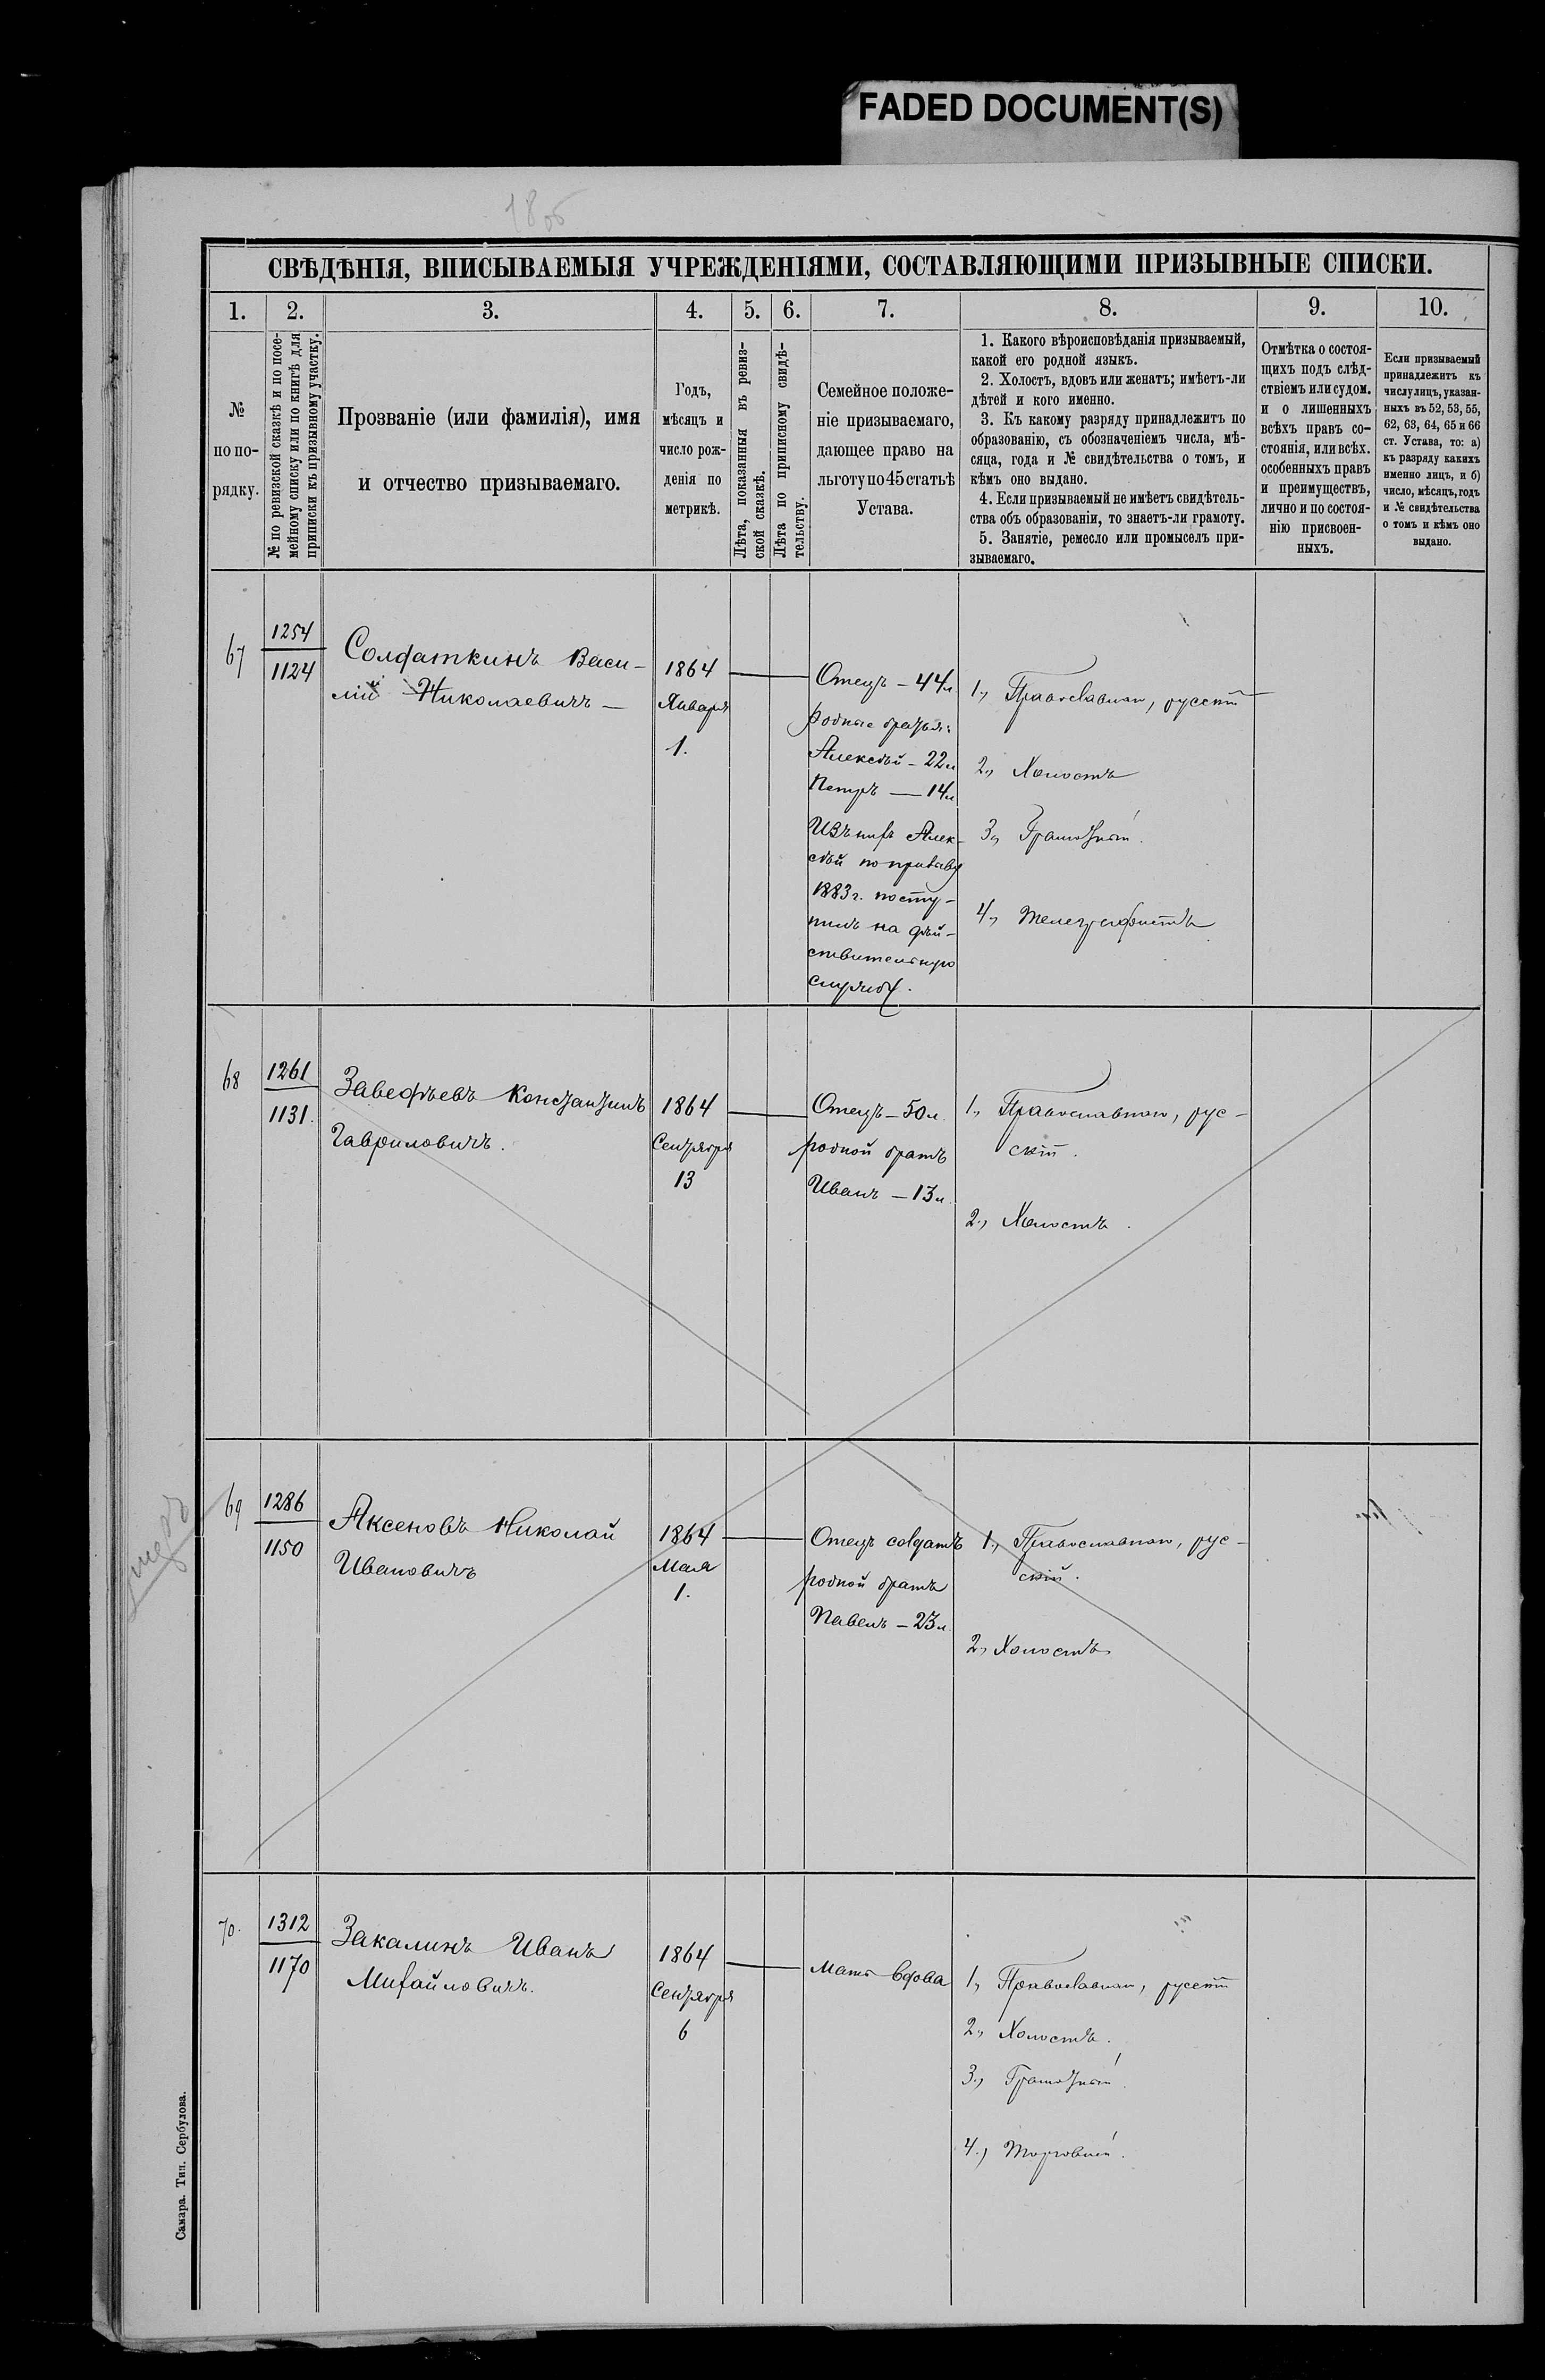 FADED DOCUMENT(S)
СВѢДѢНІЯ, ВПИСЫВАЕМЫЯ УЧРЕЖДЕНІЯМИ, СОСТАВЛЯЮЩИМИ ПРИЗЫВНЫЕ СПИСКИ.
1.
2.
3.
4.
5.
6.
7.
8.
9.
10.
№
по по-
рядку.
№ по ревизской сказкѣ и по посе-
мейному списку или по книгѣ для
приписки къ призывному участку.
Прозваніе (или фамилія), имя
и отчество призываемаго.
Годъ,
мѣсяцъ и
число рож-
денія по
метрикѣ.
Лѣта, показанныя въ ревиз-
ской сказкѣ.
Лѣта по приписному свидѣ-
тельству.
Семейное положе-
ніе призываемаго,
дающее право на
льготу по 45 статьѣ
Устава.
1. Какого вѣроисповѣданія призываемый,
какой его родной языкъ.
2. Холостъ, вдовъ или женатъ; имѣетъ-ли
дѣтей и кого именно.
3. Къ какому разряду принадлежитъ по
образованію, съ обозначеніемъ числа, мѣ-
сяца, года и № свидѣтельства о томъ, и
кѣмъ оно выдано.
4. Если призываемый не имѣетъ свидѣтель-
ства объ образованіи, то знаетъ-ли грамоту.
5. Занятіе, ремесло или промыселъ при-
зываемаго.
Отмѣтка о состоя-
щихъ подъ слѣд-
ствіемъ или судом.
и о лишенныхъ
всѣхъ правъ со-
стоянія, или всѣх.
особенныхъ правъ
и преимуществъ,
лично и по состоя-
нію присвоен-
ныхъ.
Если призываемый
принадлежитъ къ
числу лицъ, указан-
ныхъ въ 52, 53, 55,
62, 63, 64, 65 и 66
ст. Устава, то: а)
къ разряду какихъ
именно лиц, и б)
число, мѣсяцъ, годъ
и № свидѣтельства
о томъ и кѣмъ оно
выдано.
67
1254
1124
Солдаткинъ Васи-
лій Николаевичъ —
1864
Января
1.
Отецъ – 44 л
родные братья:
Алексѣй – 22 л
Петръ — 14 л
Изъ нихъ Алек-
сѣй по призыву
1883 г. посту-
пилъ на дѣй-
ствительную
службу.
1, Православная, русскій
2, Холостъ
3, Грамотный.
4, Телеграфистъ
68
1261
1131.
Завефѣевъ Константинъ
Гавриловичъ.
1864
Сентября
13
Отецъ – 50 л.
родной братъ
Иванъ – 13 л.
1, Православная, рус-
скій.
2, Холостъ.
69
1286
1150
Аксеновъ Николай
Ивановичъ
1864
Мая
1.
Отецъ солдатъ
родной братъ
Павелъ – 23 л.
1, Православная, рус-
скій.
2, Холостъ
70.
1312
1170
Закалинъ Иванъ
Михайловичъ.
1864
Сентября
6
Мать вдова
1, Православная, русскій
2, Холостъ.
3, Грамотный.
4, Торговый.
Самара. Тип. Сербулова.